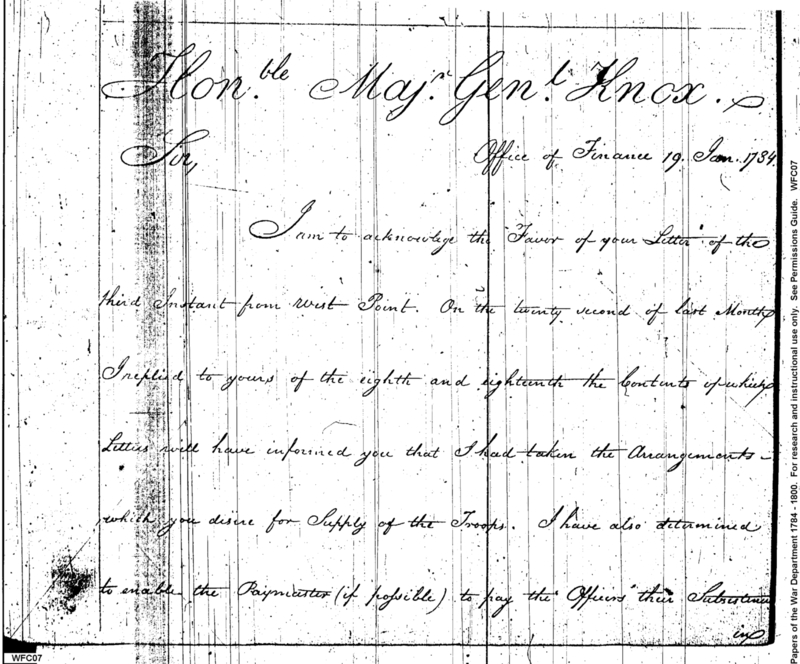 Hon.ble Maj.r Gen.l Knox.
Sir,
Office of Finance 19. Jan. 1784.
I am to acknowlege the Favor of your Letter of the
third Instant from West Point. On the twenty second of last Month
I replied to yours of the eighth and eighteenth the Contents of which
Letters will have informed you that I had taken the Arrangements
which you desire for Supply of the Troops. I have also determined
to enable the Paymaster (if possible) to pay the Officers their Subsistence
in
WFC07
Papers of the War Department 1784 - 1800. For research and instructional use only. See Permissions Guide. WFC07